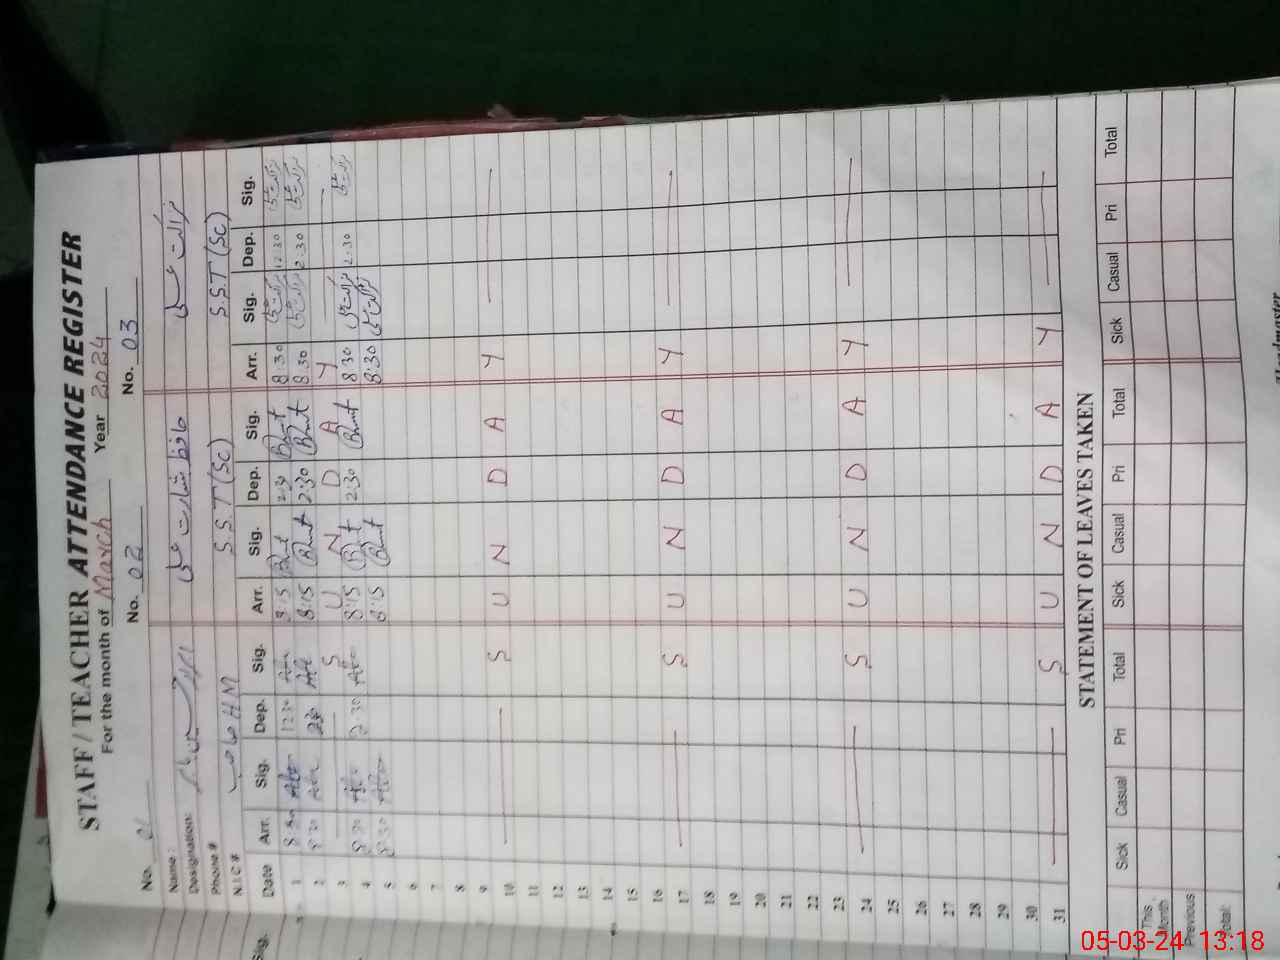 STAFF / TEACHER ATTENDANCE REGISTER
For the month of March Year 2024
No. 01 No. 02 No. 03
Name:
Designation: حافظ بشارت علی نزاکت علی
Phone #
N.I.C # HM صاحب S.S.T (SC) S.S.T (SC)
Date Arr. Sig. Dep. Sig. Arr. Sig. Dep. Sig. Arr. Sig. Dep. Sig.
1 8:30 12:30 8:15 8:30 12:30
2 8:30 8:15 2:30 8:30 2:30
3 S U N D A Y
4 8:30 2:30 8:15 2:30 8:30 2:30
5 8:30 8:15 8:30
6
7
8
9
10 S U N D A Y
11
12
13
14
15
16
17 S U N D A Y
18
19
20
21
22
23
24 S U N D A Y
25
26
27
28
29
30
31 S U N D A Y
STATEMENT OF LEAVES TAKEN
Sick Casual Pri Total Sick Casual Pri Total Sick Casual Pri Total
This Month
Previous
Total:
Headmaster
Sig.
05-03-24 13:18